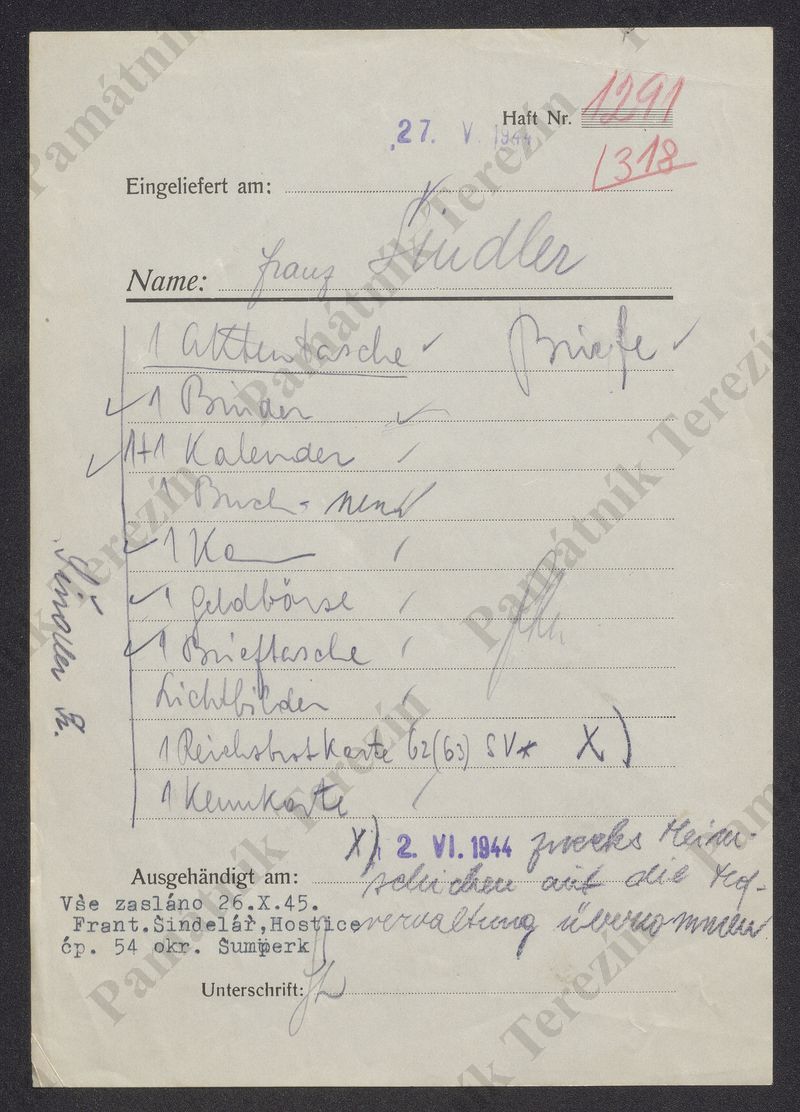 Haft Nr. 1291
27. V. 1944
1318
Eingeliefert am:
Name: Franz Šindler
1 Akttentasche Briefe
1 Binder
1+1 Kalender
1 Buch - neu
1 Ka
1 Geldbörse
1 Brieftasche
Lichtbilder
1 Reichsbrotkarte 62(63) SV* X)
1 Kennkarte
X) 2. VI. 1944 zwecks Heim-
Ausgehändigt am: schicken auf die
Vše zasláno 26.X.45.
Frant.Šindelář,Hostice verwaltung übernommen
čp. 54 okr. Šumperk
Unterschrift:
Šindler Fr.
Památník Terezín